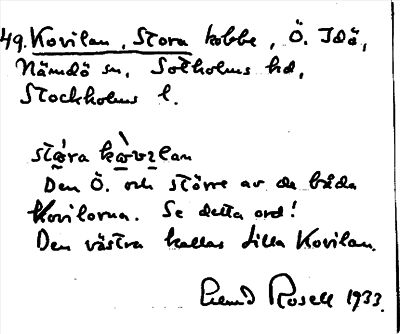 49. Kovilan, Stora kobbe, Ö. Idö,
Nämdö sn, Sotholms hd,
Stockholms l.
stɷ́ra kɷ̀vɩlan
Den Ö. och större av de båda
Kovilorna. Se detta ord!
Den västra kallas Lilla Kovilan.
Rosell 1933.